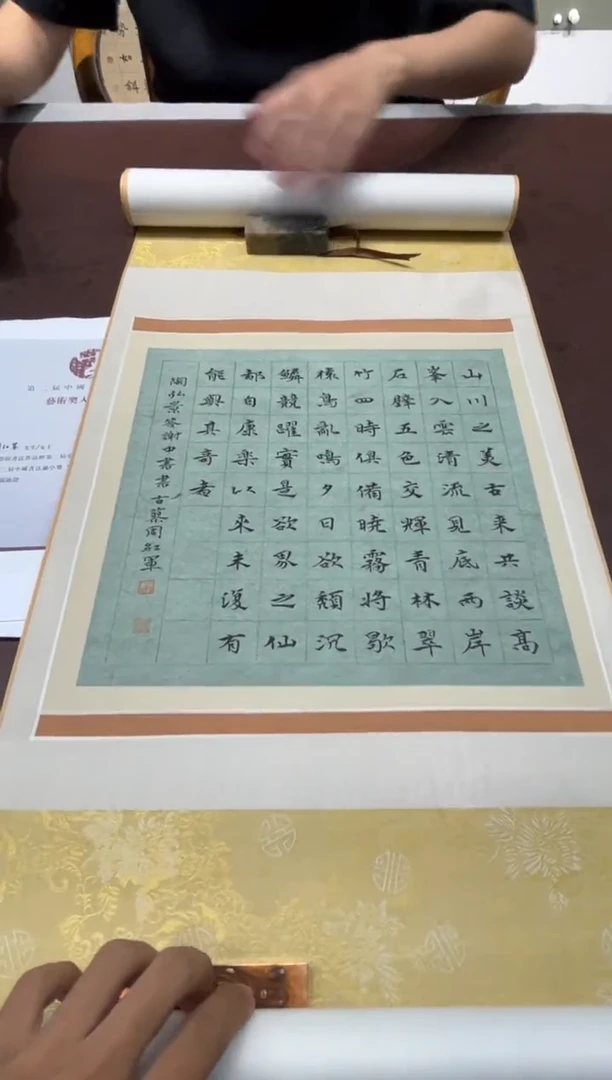 山川之美古來共談高
峯入雲清流見底兩岸
石壁五色交輝青林翠
竹四時俱備曉霧將歇
猿鳥亂鳴夕日欲頹沉
鱗競躍實是欲界之仙
都自康樂以來未復有
能與其奇者
陶弘景答謝中書書 古蔡周紅軍
第二届中國
藝術獎入